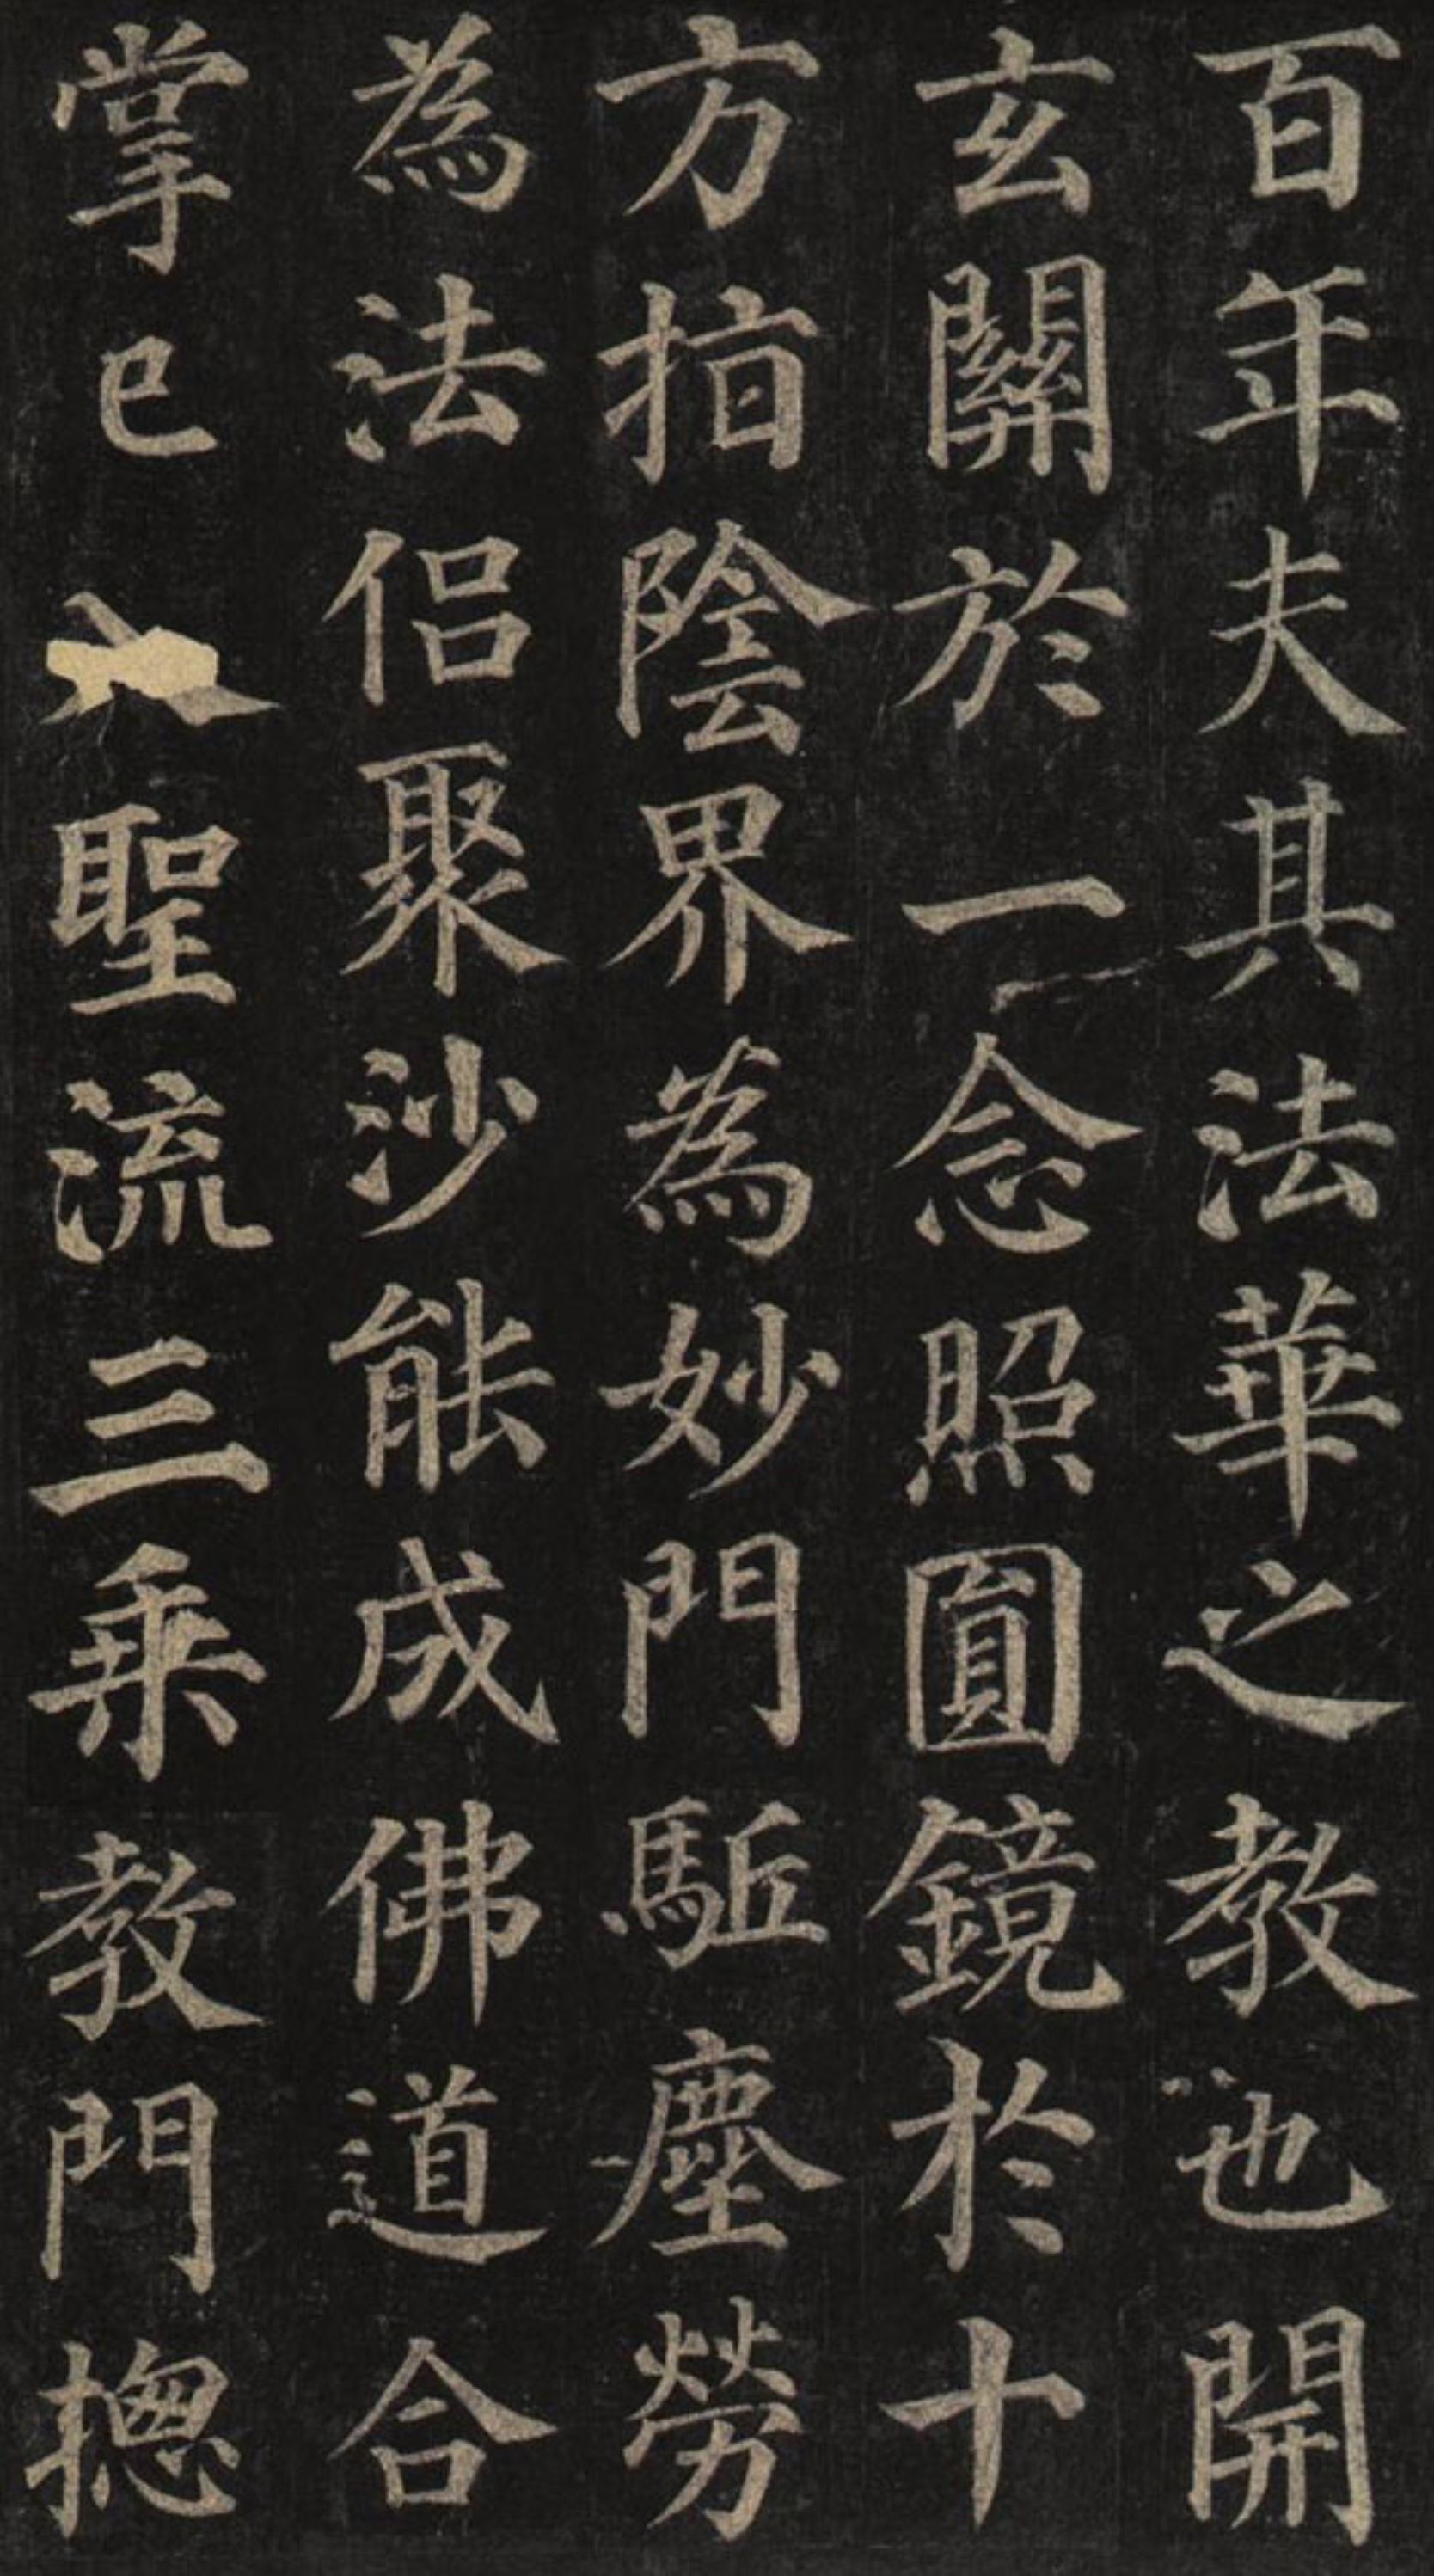 百年夫其法華之教也開
玄關於一念照圓鏡於十
方指陰界為妙門駈塵勞
為法侶聚沙能成佛道合
掌已入聖流三乘教門摠